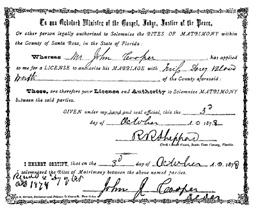 To any Ordained Minister of the Gospel, Judge, Justice of the Peace,
Or other person legally authorized to Solemnize the RITES OF MATRIMONY within the
County of Santa Rosa, in the State of Florida:
Whereas Mr John Cooper has applied
to me for a LICENSE to authorize his MARRIAGE with Miss
of the County aforesaid:
These, are therefore your License and Authority to Solemnize MATRIMONY
between the said parties.
GIVEN under my hand and seal official, this the 3d
day of October 1878
R R Sheppard
Clerk Circuit Court, Santa Rosa County, Florida.
I HEREBY CERTIFY, that on the 3d day of October 1878
I solemnized the Rites of Matrimony between the above named parties.
John J Cooper